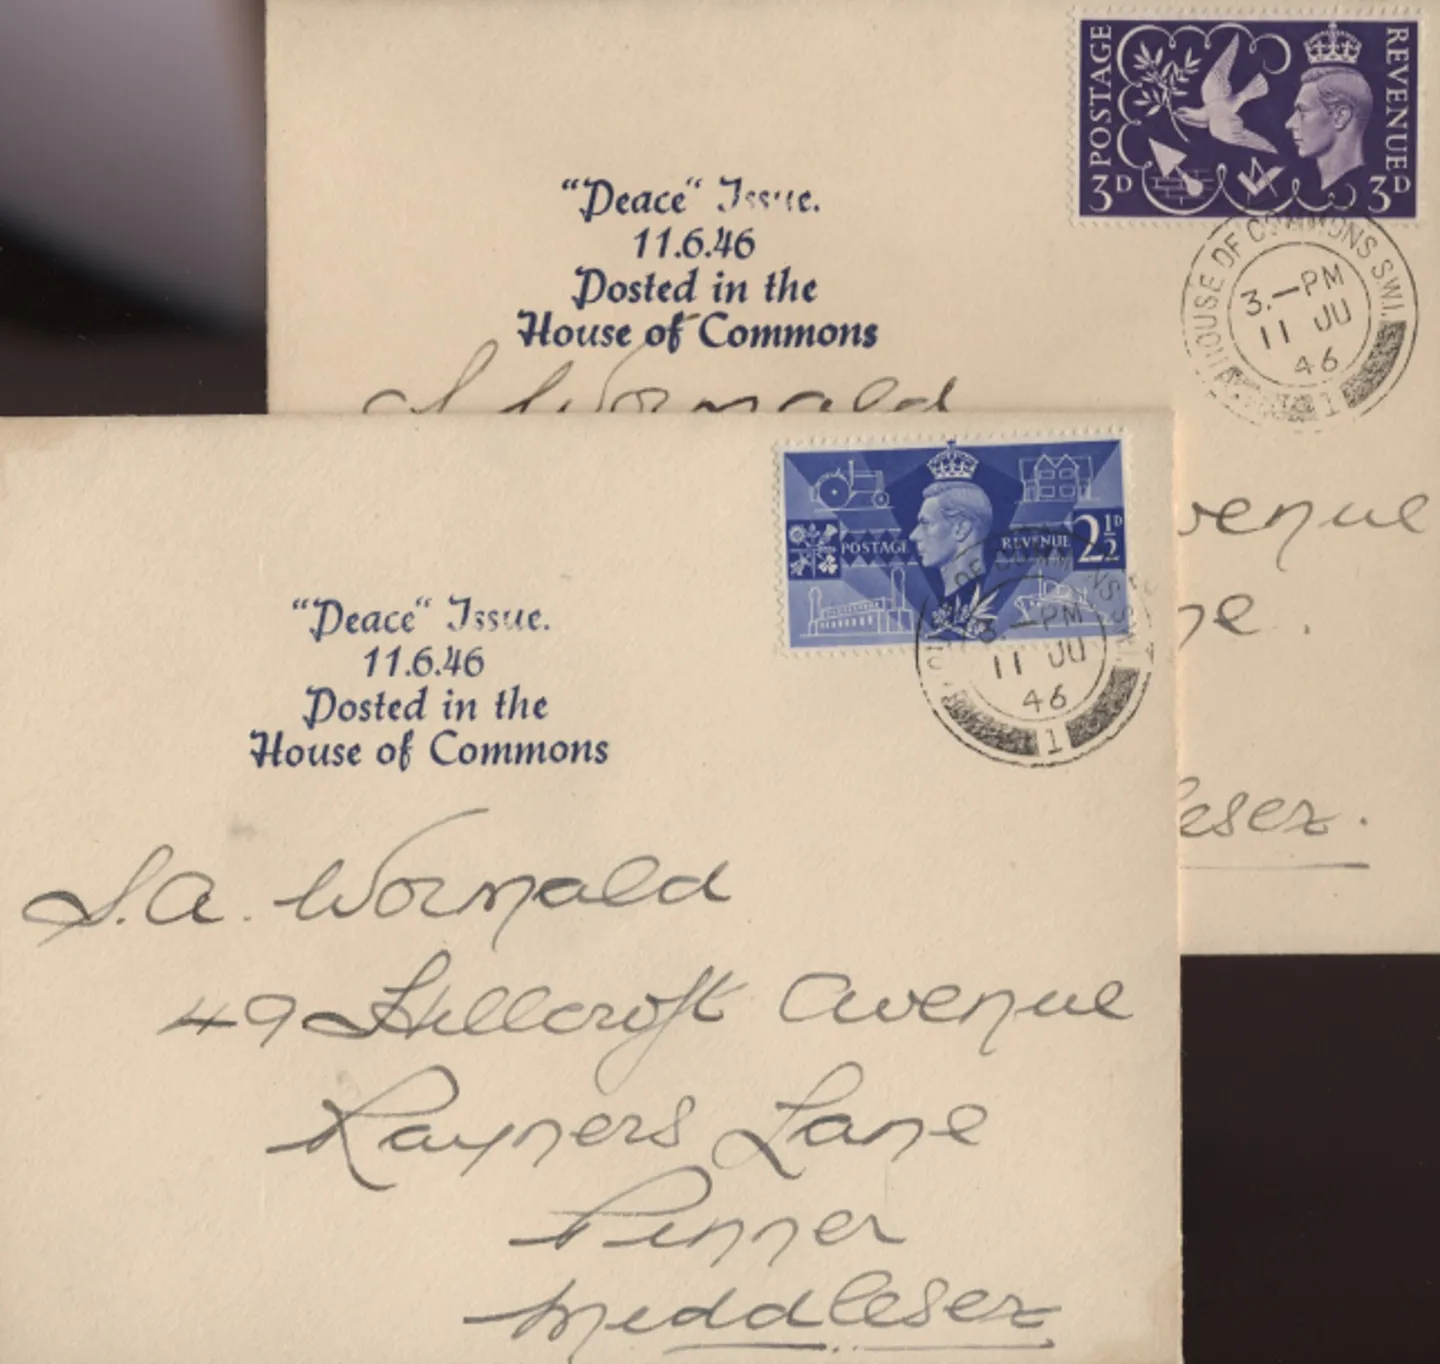 POSTAGE
REVENUE
3D
3D
"Peace" Issue.
11.6.46
Posted in the
House of Commons
HOUSE OF COMMONS S.W.1.
3.-PM
11 JU
46
1
S. Wormald
venue
ne.
lesex.
POSTAGE
REVENUE
2½D
"Peace" Issue.
11.6.46
Posted in the
House of Commons
OF COMMONS S.W.1.
3.-PM
11 JU
46
1
S.A. Wormald
49 Hillcroft Avenue
Rayners Lane
Pinner
Middlesex.